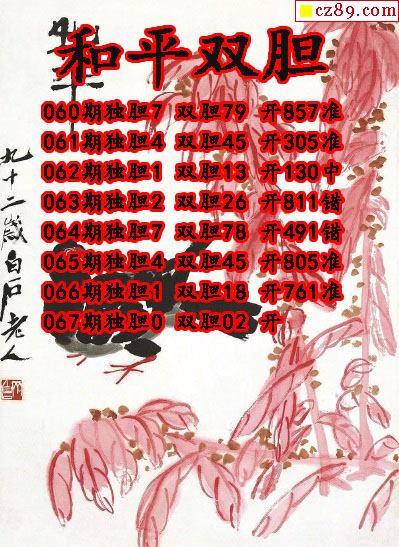 cz89.com
和平双胆
060期独胆7 双胆79 开857准
061期独胆4 双胆45 开305准
062期独胆1 双胆13 开130中
063期独胆2 双胆26 开811错
064期独胆7 双胆78 开491错
065期独胆4 双胆45 开805准
066期独胆1 双胆18 开761准
067期独胆0 双胆02 开
九十二岁白石老人